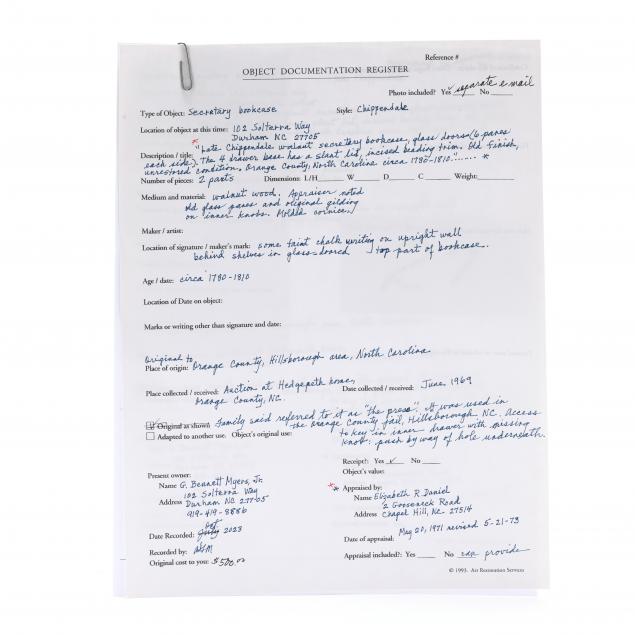 Reference #
OBJECT DOCUMENTATION REGISTER
Photo included? Yes ✓ separate e-mail No
Type of Object: Secretary bookcase Style: Chippendale
Location of object at this time: 102 Solterra Way
Durham NC 27705
Description / title: * Late Chippendale walnut secretary bookcase, glass doors (6 panes
each side). The 4 drawer base has a slant lid, incised beading trim. Old finish,
unrestored condition, Orange County, North Carolina circa 1780-1810....... *
Number of pieces: 2 parts Dimensions: L/H W D C Weight:
Medium and material: walnut wood. Appraiser noted
old glass panes and original gilding
on inner knobs. Molded cornices.
Maker / artist:
Location of signature / maker's mark: some faint chalk writing on upright wall
behind shelves in glass-doored top part of bookcase.
Age / date: circa 1780-1810
Location of Date on object:
Marks or writing other than signature and date:
Original to
Place of origin: Orange County, Hillsborough area, North Carolina
Place collected / received: Auction at Hedgepeth home, Date collected / received: June, 1969
Orange County, NC.
Original as shown Family said referred to it as "the press". It was used in
the Orange County jail, Hillsborough NC. Access
Adapted to another use. Object's original use: to key in inner drawer with missing
knob: push by way of hole underneath.
Receipt?: Yes ✓ No
Object's value:
Present owner:
Name G. Bennett Myers, Jr.
Address 102 Solterra Way
Durham NC 27705
919-419-8886
Date Recorded: July Oct 2023
Recorded by:
Original cost to you: $500.00
** Appraised by:
Name Elizabeth R Daniel
2 Gooseneck Road
Address Chapel Hill, NC 27514
May 20, 1971 revised 5-21-73
Date of appraisal:
Appraisal included?: Yes No can provide
© 1993. Art Restoration Services